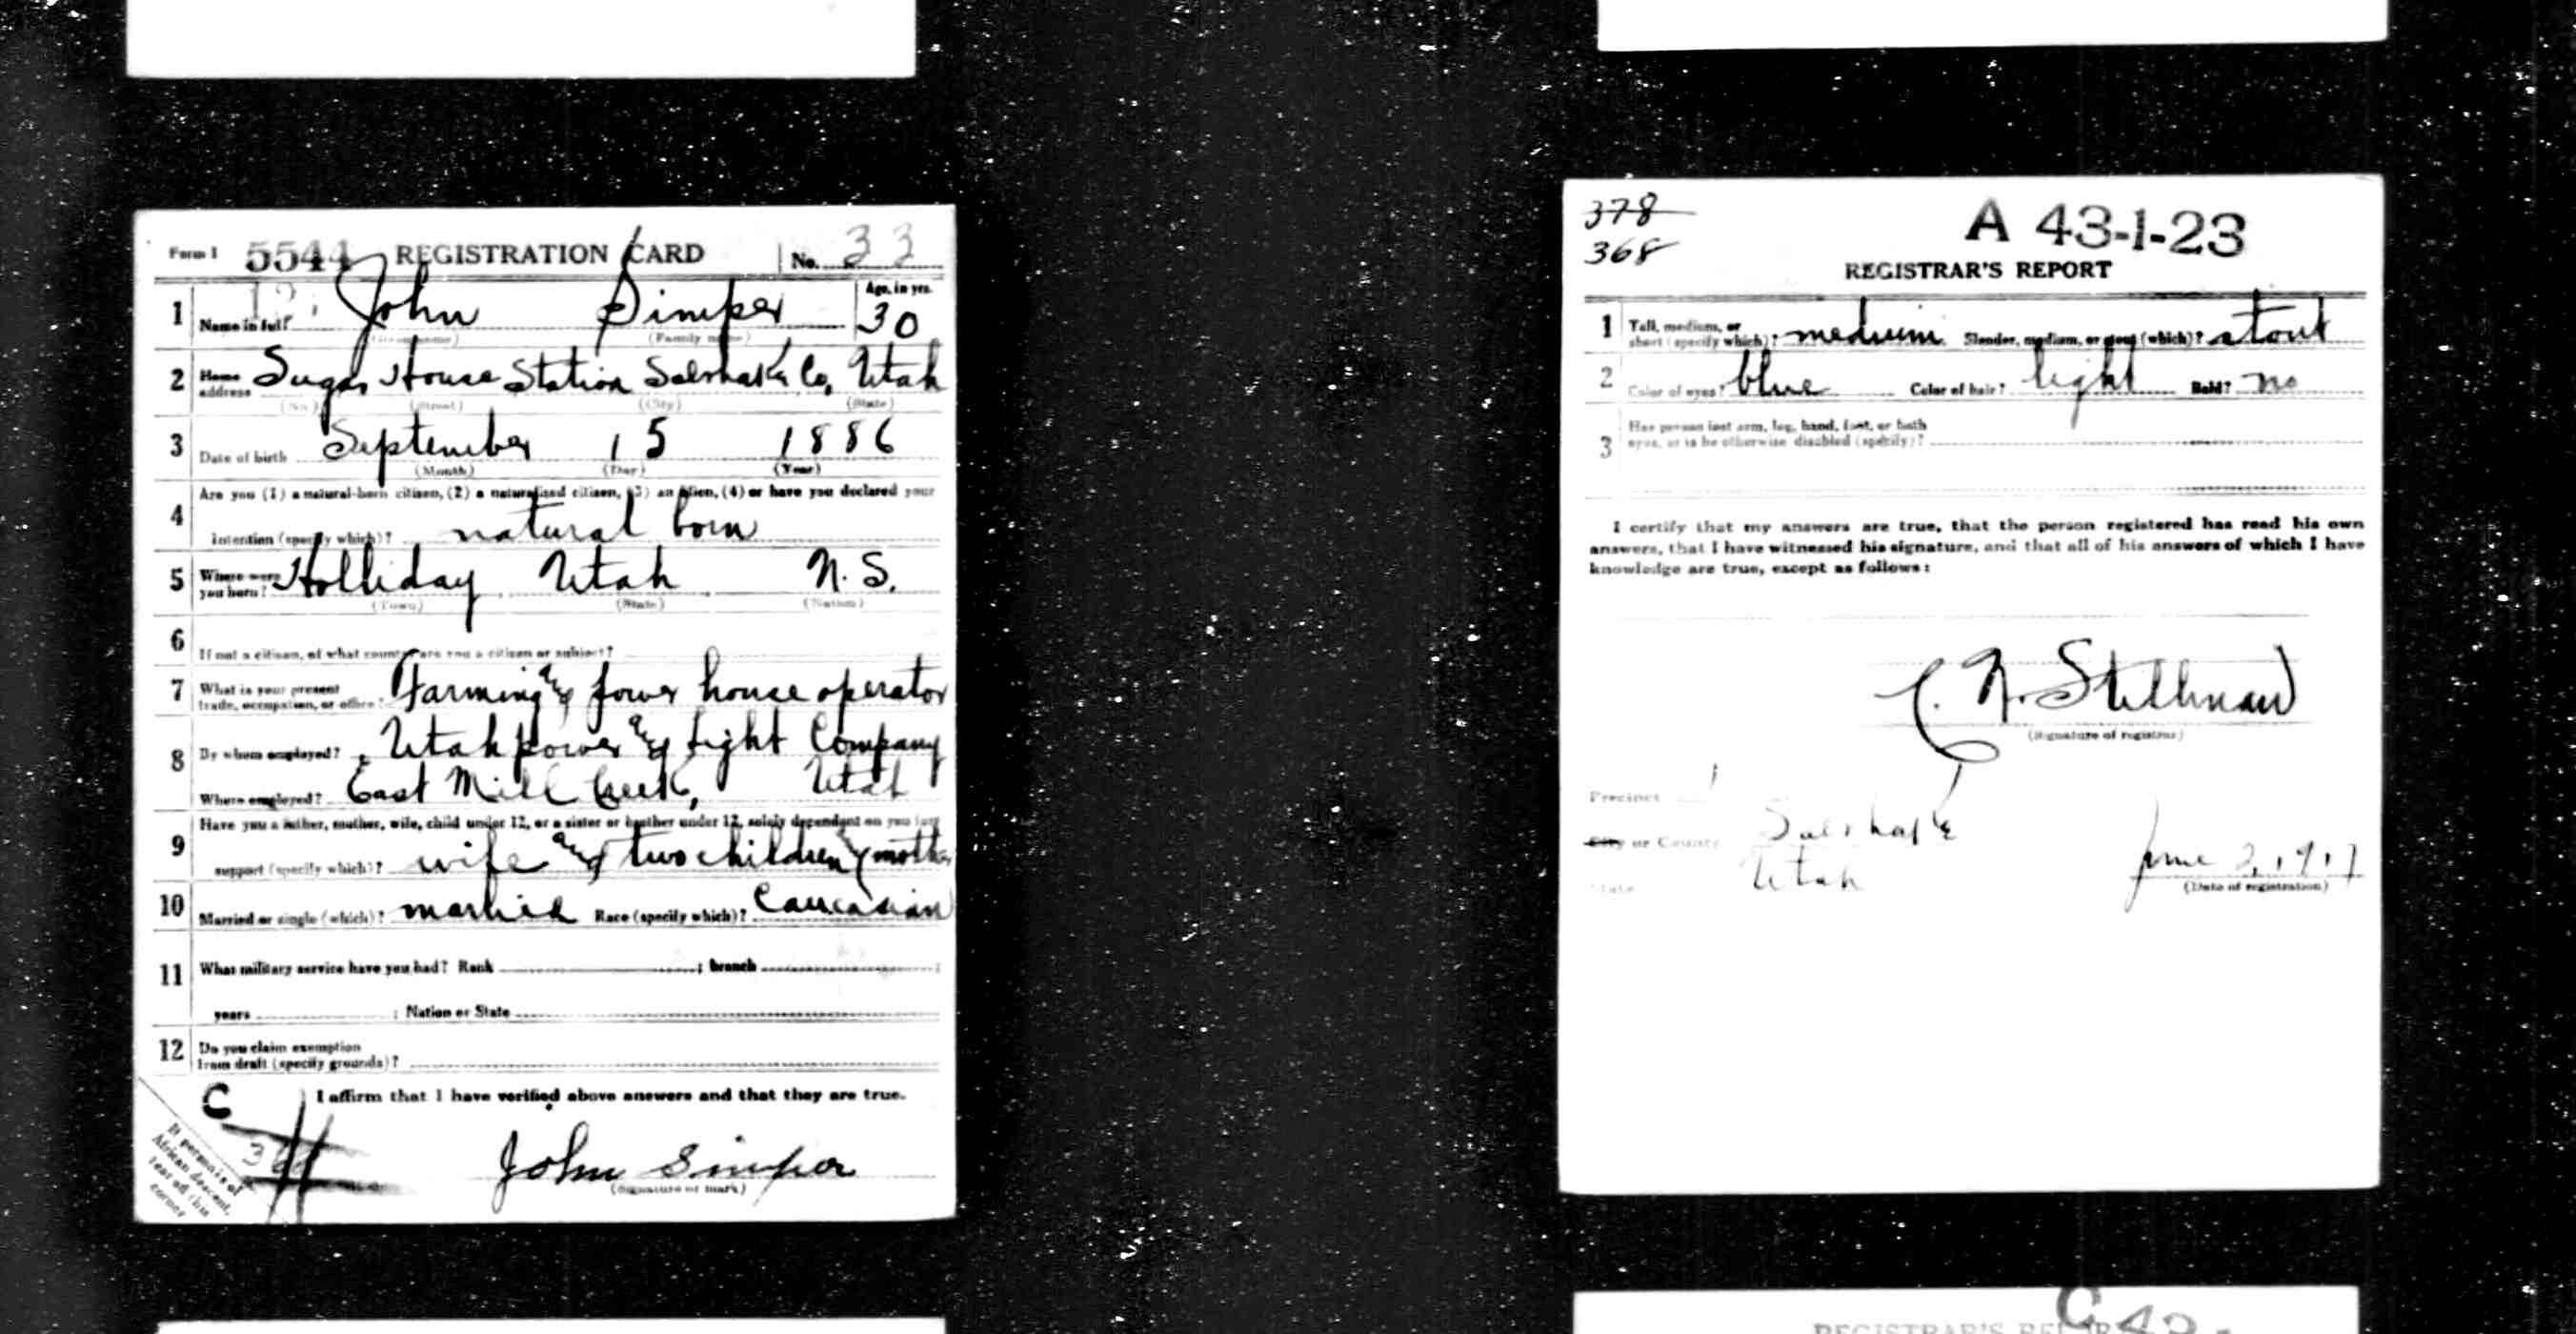 Form 1 5544 REGISTRATION CARD No. 33
1 Name in full John Simper Age, in yrs. 30
(Given name) (Family name)
2 Home address Sugar House Station Salt Lake Co, Utah
(No.) (Street) (City) (State)
3 Date of birth September 15 1886
(Month) (Day) (Year)
4 Are you (1) a natural-born citizen, (2) a naturalized citizen, (3) an alien, (4) or have you declared your
intention (specify which)? natural born
5 Where were you born? Holliday Utah N. S.
(Town) (State) (Nation)
6 If not a citizen, of what country are you a citizen or subject?
7 What is your present trade, occupation, or office? Farming and power house operator
8 By whom employed? Utah power and Light Company
Where employed? East Mill Creek, Utah
9 Have you a father, mother, wife, child under 12, or a sister or brother under 12, solely dependent on you for
support (specify which)? wife and two children & mother
10 Married or single (which)? married Race (specify which)? Caucasian
11 What military service have you had? Rank ; branch ;
years ; Nation or State
12 Do you claim exemption
from draft (specify grounds)?
I affirm that I have verified above answers and that they are true.
C
If person is of
African descent,
tear off this
corner
John Simper
(Signature or mark)
378
368
A 43-1-23
REGISTRAR'S REPORT
1 Tall, medium, or
short (specify which)? medium Slender, medium, or stout (which)? stout
2 Color of eyes? blue Color of hair? light Bald? no
3 Has person lost arm, leg, hand, foot, or both
eyes, or is he otherwise disabled (specify)?
I certify that my answers are true, that the person registered has read his own
answers, that I have witnessed his signature, and that all of his answers of which I have
knowledge are true, except as follows:
C. N. Stillman
(Signature of registrar)
Precinct 1
City or County Salt Lake
State Utah
June 2, 1917
(Date of registration)
REGISTRAR'S REPORT